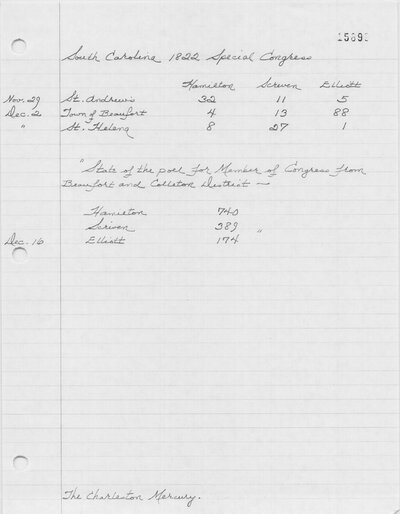 15893
South Carolina 1822 Special Congress
Hamilton Scriven Elliott
Nov. 29 St. Andrew's 32 11 5
Dec. 2 Town of Beaufort 4 13 88
" St. Helena 8 27 1
"State of the poll for Member of Congress from
Beaufort and Colleton District —
Hamilton 740
Scriven 389 "
Dec. 16 Elliott 174
The Charleston Mercury.